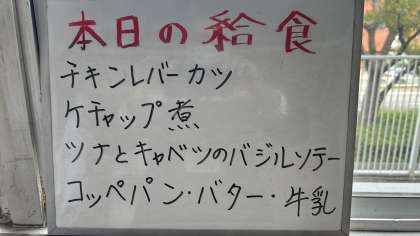 本日の給食
チキンレバーカツ
ケチャップ煮
ツナとキャベツのバジルソテー
コッペパン・バター・牛乳